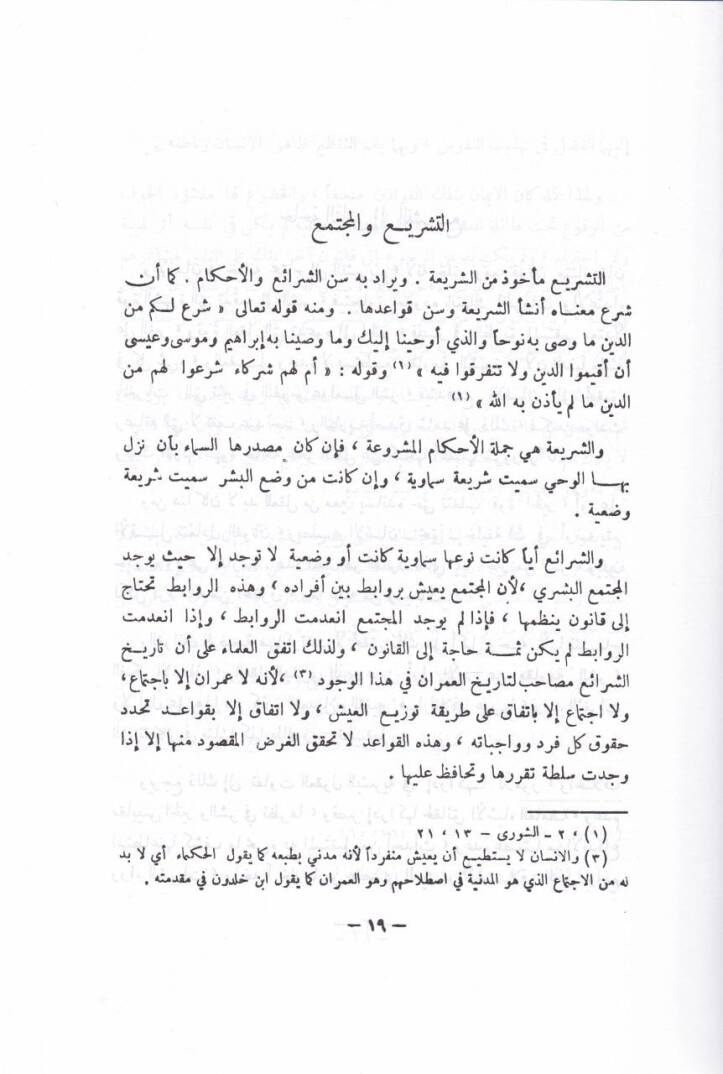 التشريع والمجتمع
التشريع مأخوذ من الشريعة . ويراد به سن الشرائع والأحكام . كما أن
شرع معناه أنشأ الشريعة وسن قواعدها . ومنه قوله تعالى « شرع لكم من
الدين ما وصى به نوحاً والذي أوحينا إليك وما وصينا به إبراهيم وموسى وعيسى
أن أقيموا الدين ولا تتفرقوا فيه » (١) وقوله : « أم لهم شركاء شرعوا لهم من
الدين ما لم يأذن به الله » (١)
والشريعة هي جملة الأحكام المشروعة ، فإن كان مصدرها السماء بأن نزل
بها الوحي سميت شريعة سماوية ، وإن كانت من وضع البشر سميت شريعة
وضعية .
والشرائع أياً كانت نوعها سماوية كانت أو وضعية لا توجد إلا حيث يوجد
المجتمع البشري ، لأن المجتمع يعيش بروابط بين أفراده ، وهذه الروابط تحتاج
إلى قانون ينظمها ، فإذا لم يوجد المجتمع انعدمت الروابط ، وإذا انعدمت
الروابط لم يكن ثمة حاجة إلى القانون ، ولذلك اتفق العلماء على أن تاريخ
الشرائع مصاحب لتاريخ العمران في هذا الوجود (٣) ، لأنه لا عمران إلا باجتماع ،
ولا اجتماع إلا باتفاق على طريقة توزيع العيش ، ولا اتفاق إلا بقواعد تحدد
حقوق كل فرد وواجباته ، وهذه القواعد لا تحقق الغرض المقصود منها إلا إذا
وجدت سلطة تقررها وتحافظ عليها .
(١) ، ٢ - الشورى – ١٣ ، ٢١
(٣) والانسان لا يستطيع أن يعيش منفرداً لأنه مدني بطبعه كما يقول الحكماء أي لا بد
له من الاجتماع الذي هو المدنية في اصطلاحهم وهو العمران كما يقول ابن خلدون في مقدمته .
– ١٩ –